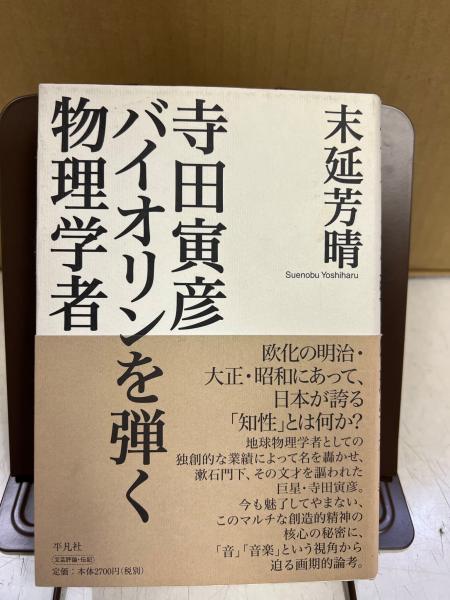 末延芳晴
Suenobu Yoshiharu
寺田寅彦
バイオリンを弾く
物理学者
欧化の明治・
大正・昭和にあって、
日本が誇る
「知性」とは何か?
地球物理学者としての
独創的な業績によって名を轟かせ、
漱石門下、その文才を謳われた
巨星・寺田寅彦。
今も魅了してやまない、
このマルチな創造的精神の
核心の秘密に、
「音」「音楽」という視角から
迫る画期的論考。
平凡社
文芸評論・伝記
定価:本体2700円(税別)